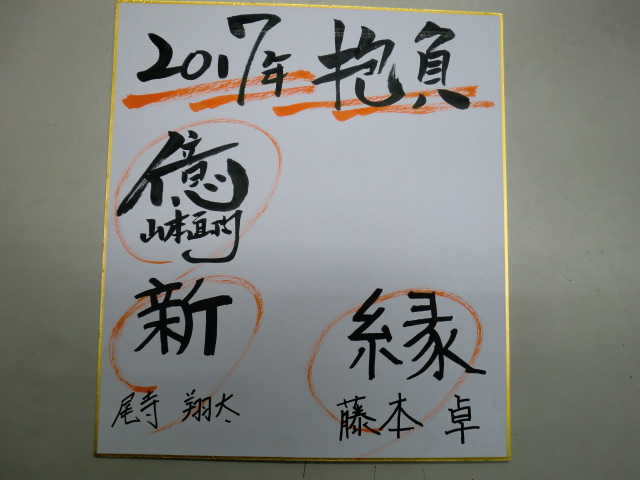 2017年 抱負
億
山本
新
尾寺 翔太
縁
藤本 卓